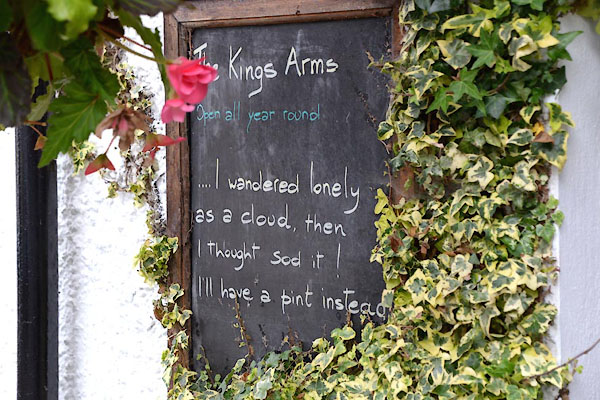 The Kings Arms
Open all year round
....I wandered lonely
as a cloud, then
I thought sod it !
I'll have a pint instead